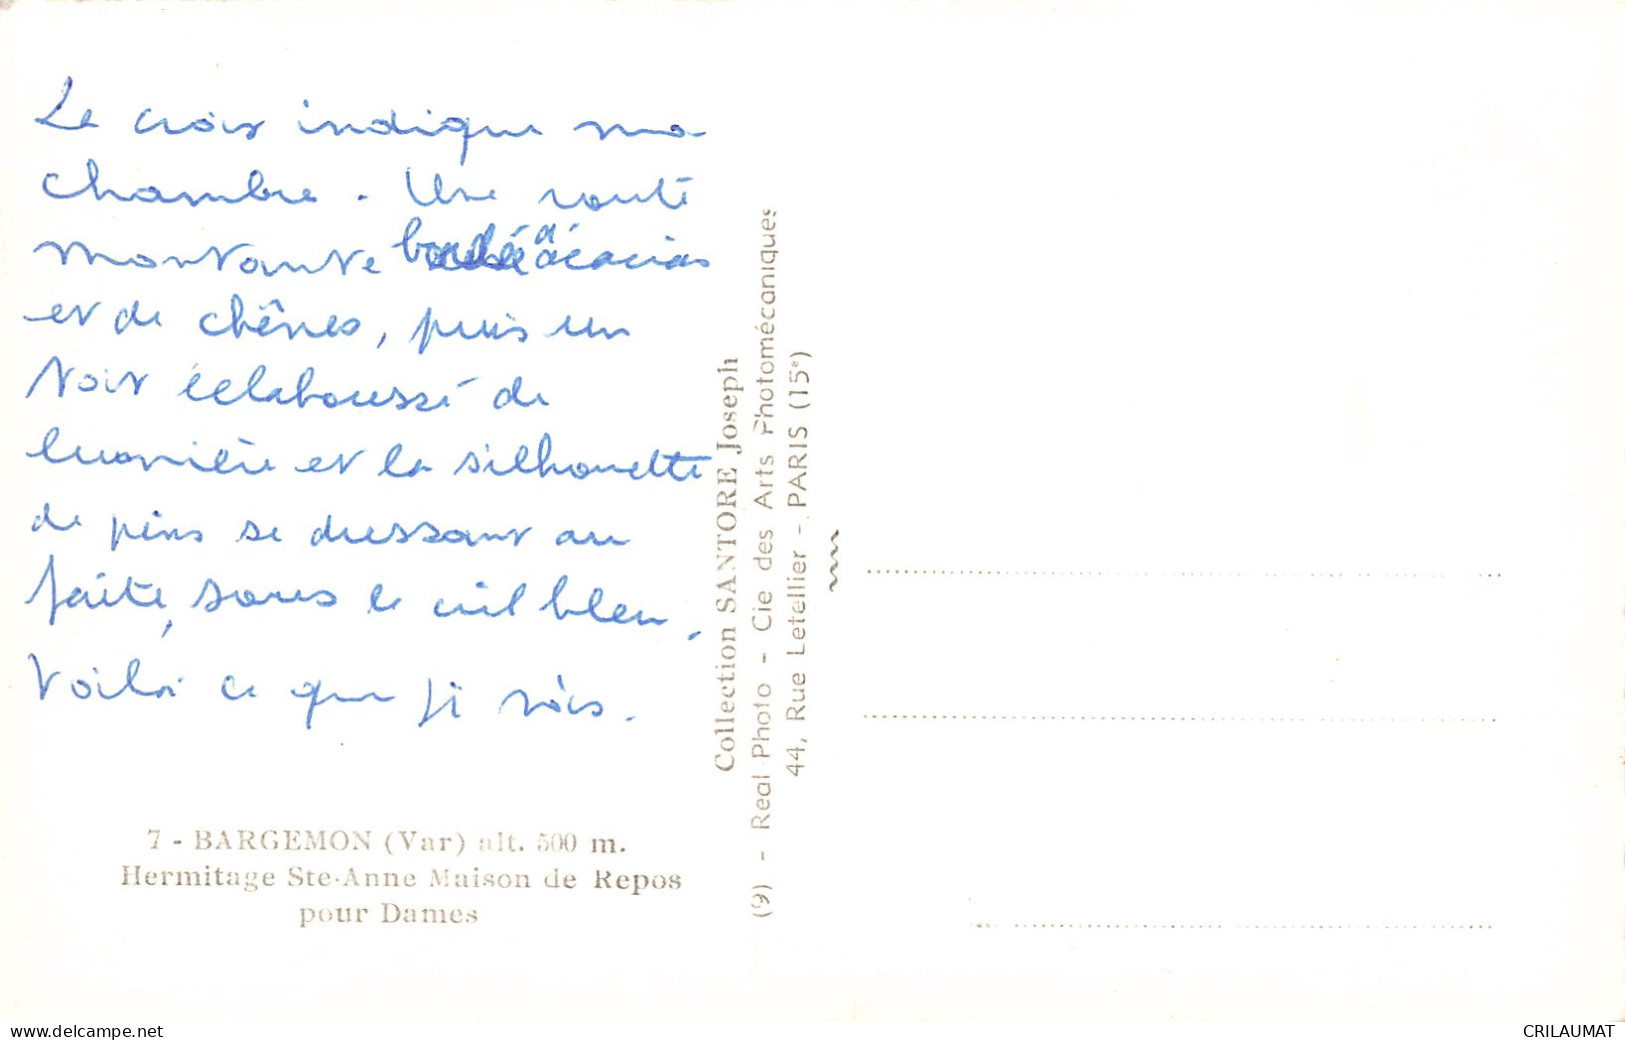 La croix indique ma
chambre. Une route
montante bordée d'acacias
et de chênes, puis un
toit éclaboussé de
lumière et la silhouette
de pins se dressant au
faîte, sous le ciel bleu.
Voilà ce que je vois.
7 - BARGEMON (Var) alt. 500 m.
Hermitage Ste-Anne Maison de Repos
pour Dames
Collection SANTORE Joseph
(9) - Real Photo - Cie des Arts Photomécaniques
44, Rue Letellier - PARIS (15e)
www.delcampe.net
CRILAUMAT